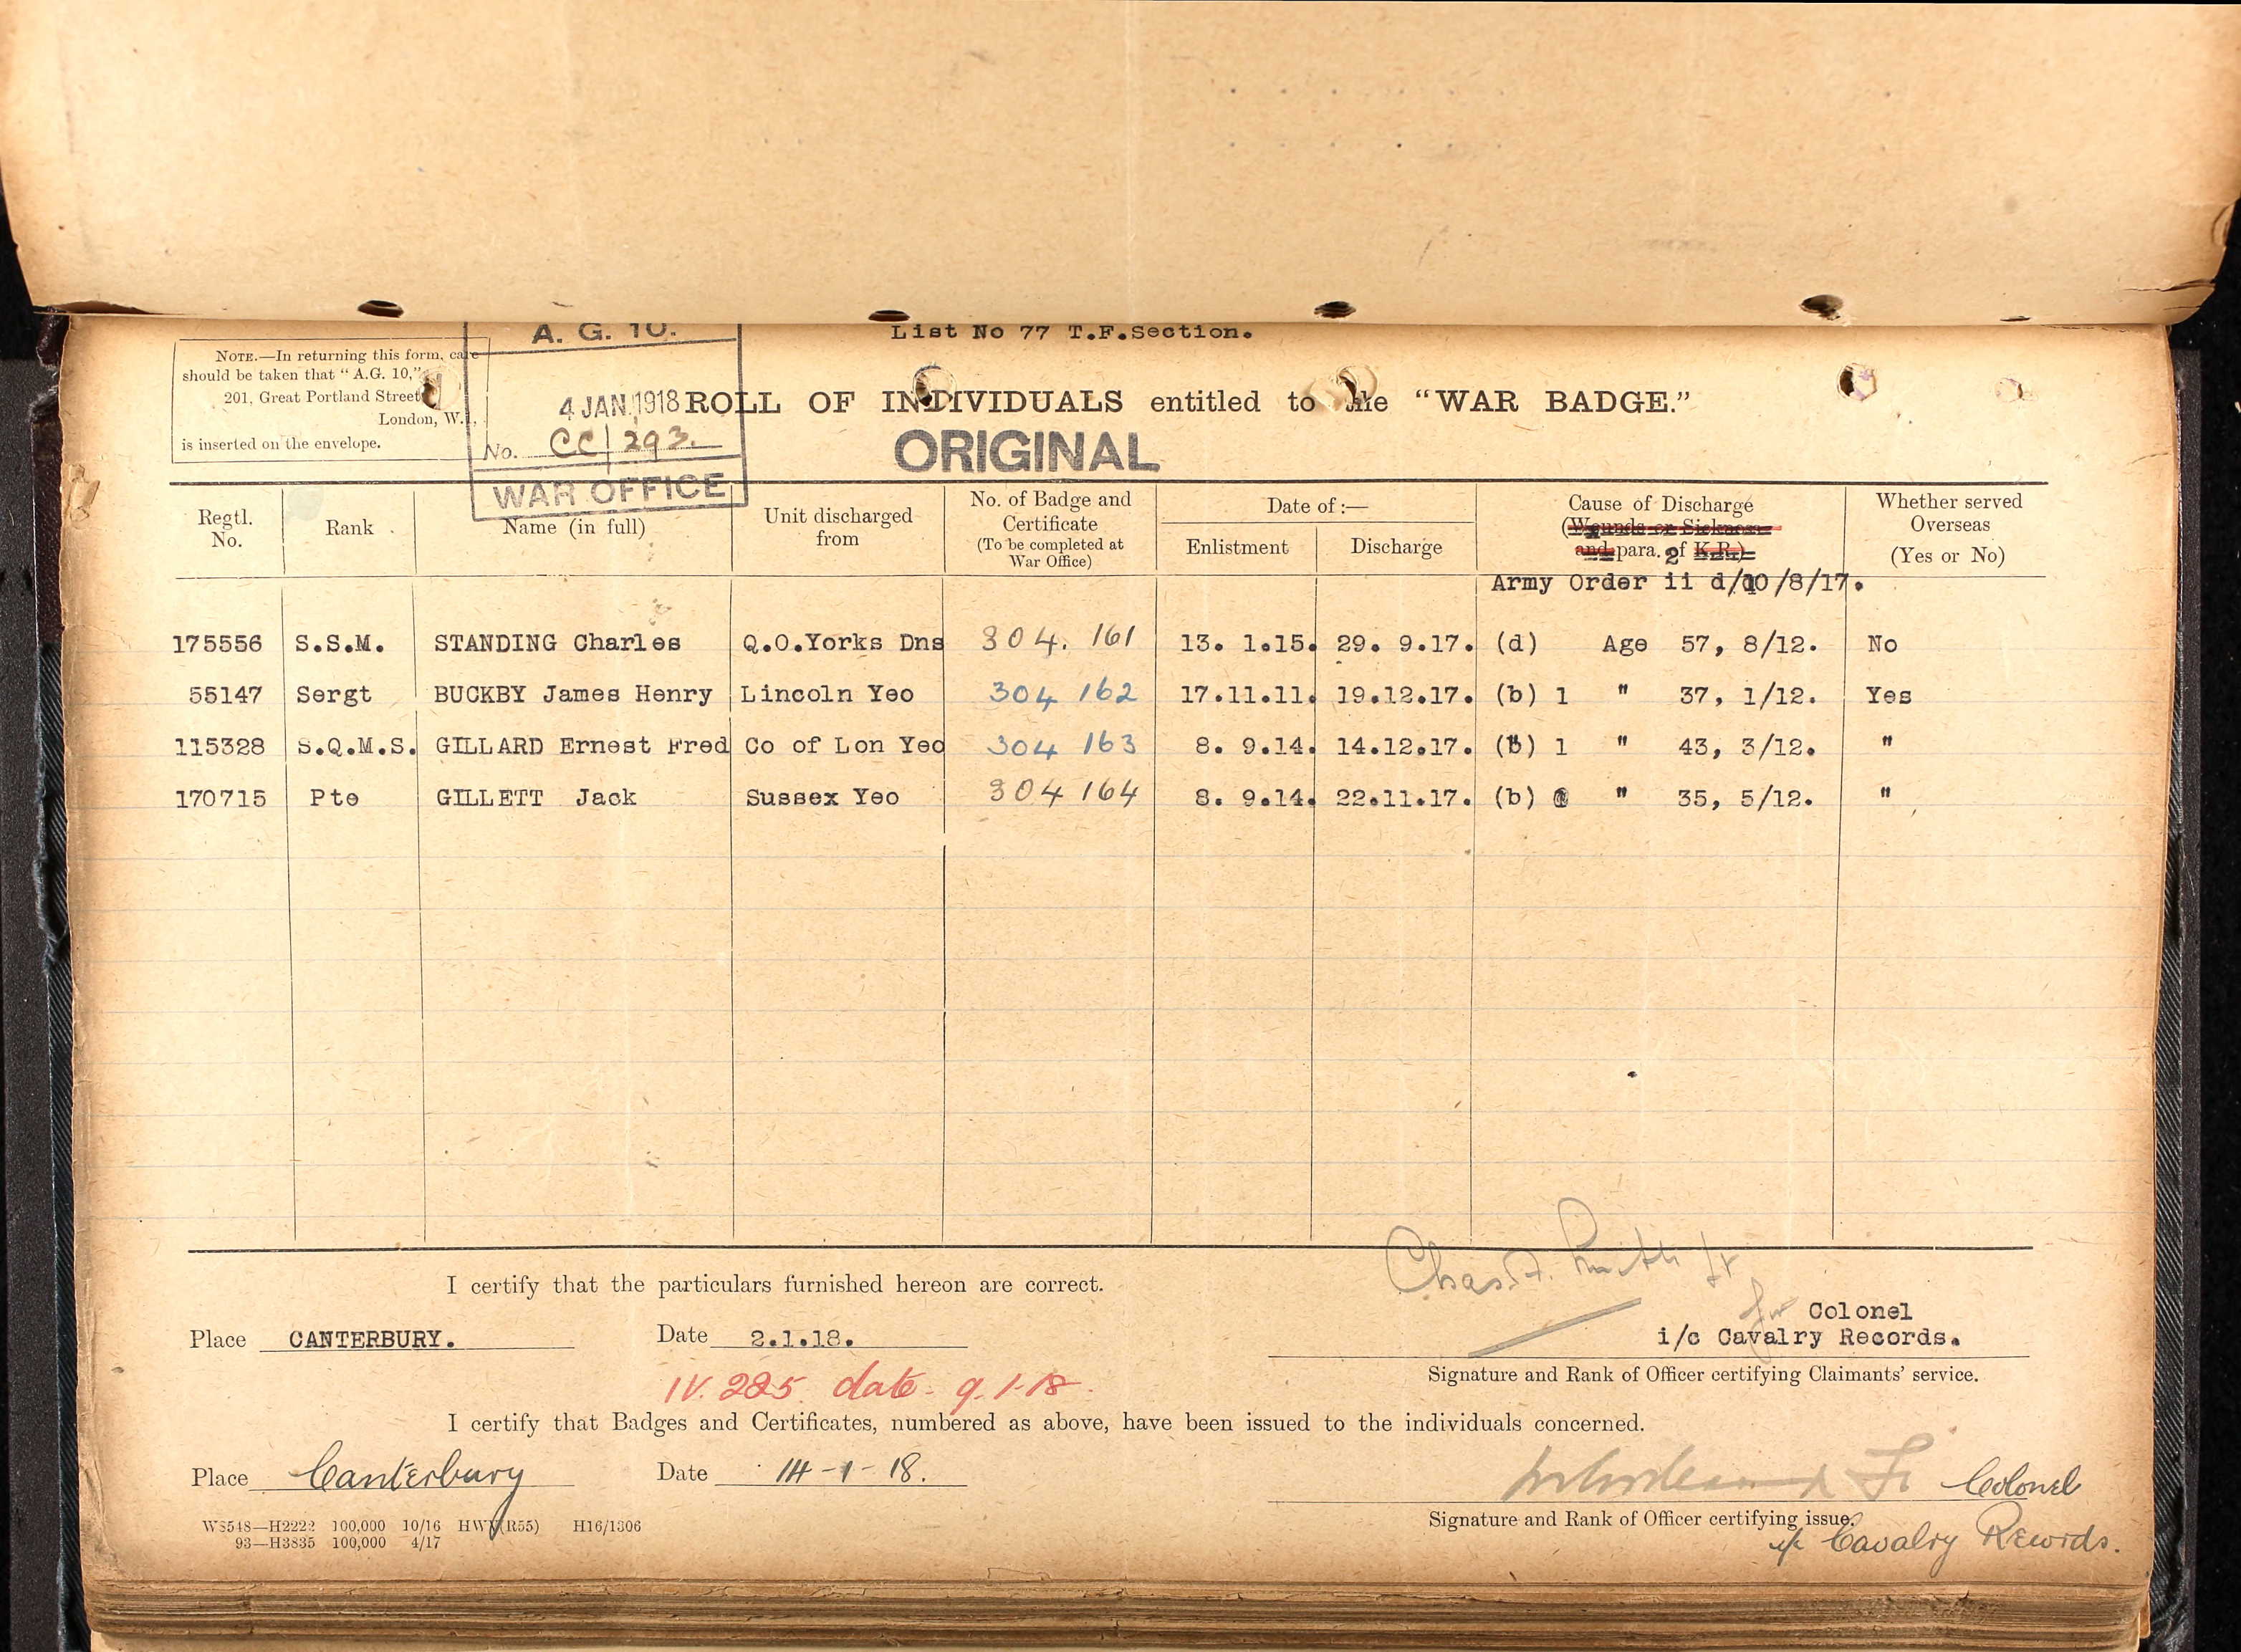 A. G. 10.
List No 77 T.F.Section.
NOTE.—In returning this form, care
should be taken that "A.G. 10,"
201, Great Portland Street,
London, W.1.,
is inserted on the envelope.
4 JAN. 1918
No. CC/293.
WAR OFFICE
ROLL OF INDIVIDUALS entitled to the "WAR BADGE."
ORIGINAL
Regtl. No. Rank Name (in full) Unit discharged from No. of Badge and Certificate (To be completed at War Office) Date of :— Enlistment Discharge Cause of Discharge (Wounds or Sickness and para. 2 of K.R.) Whether served Overseas (Yes or No)
Army Order ii d/10/8/17.
175556 S.S.M. STANDING Charles Q.O.Yorks Dns 304. 161 13. 1.15. 29. 9.17. (d) Age 57, 8/12. No
55147 Sergt BUCKBY James Henry Lincoln Yeo 304 162 17.11.11. 19.12.17. (b) 1 " 37, 1/12. Yes
115328 S.Q.M.S. GILLARD Ernest Fred Co of Lon Yeo 304 163 8. 9.14. 14.12.17. (b) 1 " 43, 3/12. "
170715 Pte GILLETT Jack Sussex Yeo 304 164 8. 9.14. 22.11.17. (b) " 35, 5/12. "
I certify that the particulars furnished hereon are correct.
Chas. Lt
for Colonel
Place CANTERBURY. Date 2.1.18. i/c Cavalry Records.
Signature and Rank of Officer certifying Claimants' service.
IV. 225 date- 9.1.18.
I certify that Badges and Certificates, numbered as above, have been issued to the individuals concerned.
Place Canterbury Date 14-1-18. Colonel
Signature and Rank of Officer certifying issue.
i/c Cavalry Records.
WS548—H2222 100,000 10/16 HWV(R55) H16/1306
93—H3835 100,000 4/17